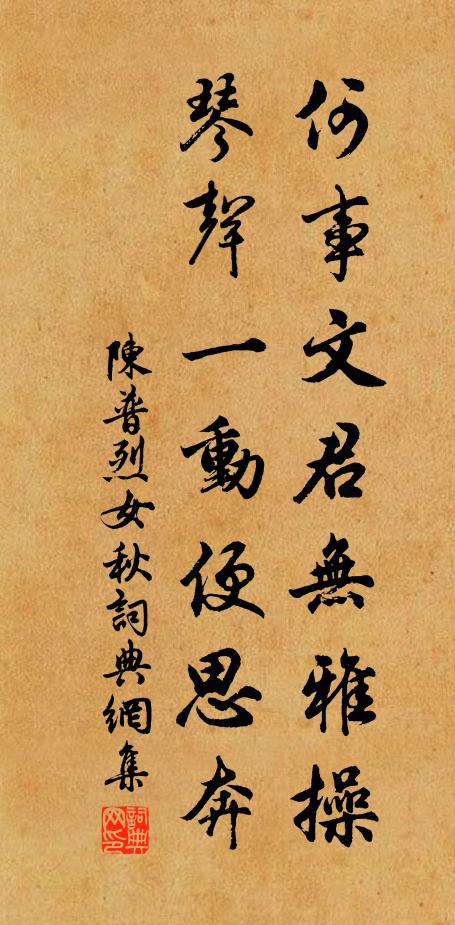 何事文君無雅操
琴聲一動便思奔
陳普烈女秋詞典網集
詞典
网印